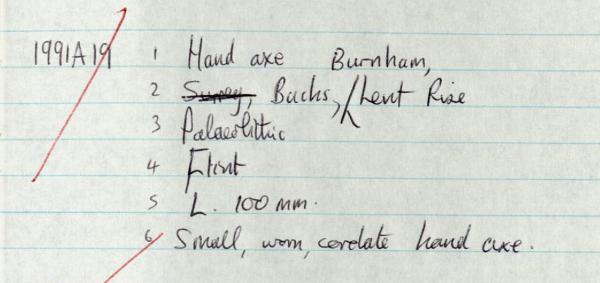 1991A19 1 Hand axe Burnham,
2 Surrey, Bucks, / Lent Rise
3 Palaeolithic
4 Flint
5 L. 100 mm.
6 Small, worn, cordate hand axe.